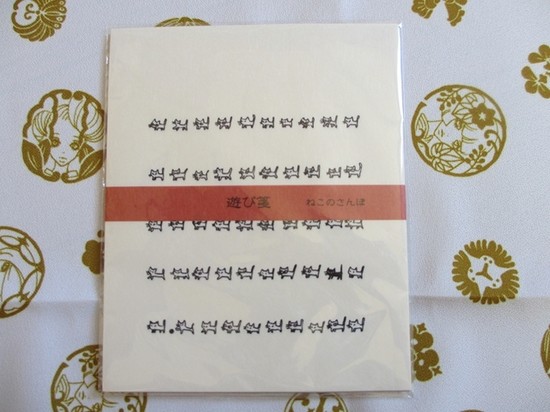 遊び箋 ねこのさんぽ